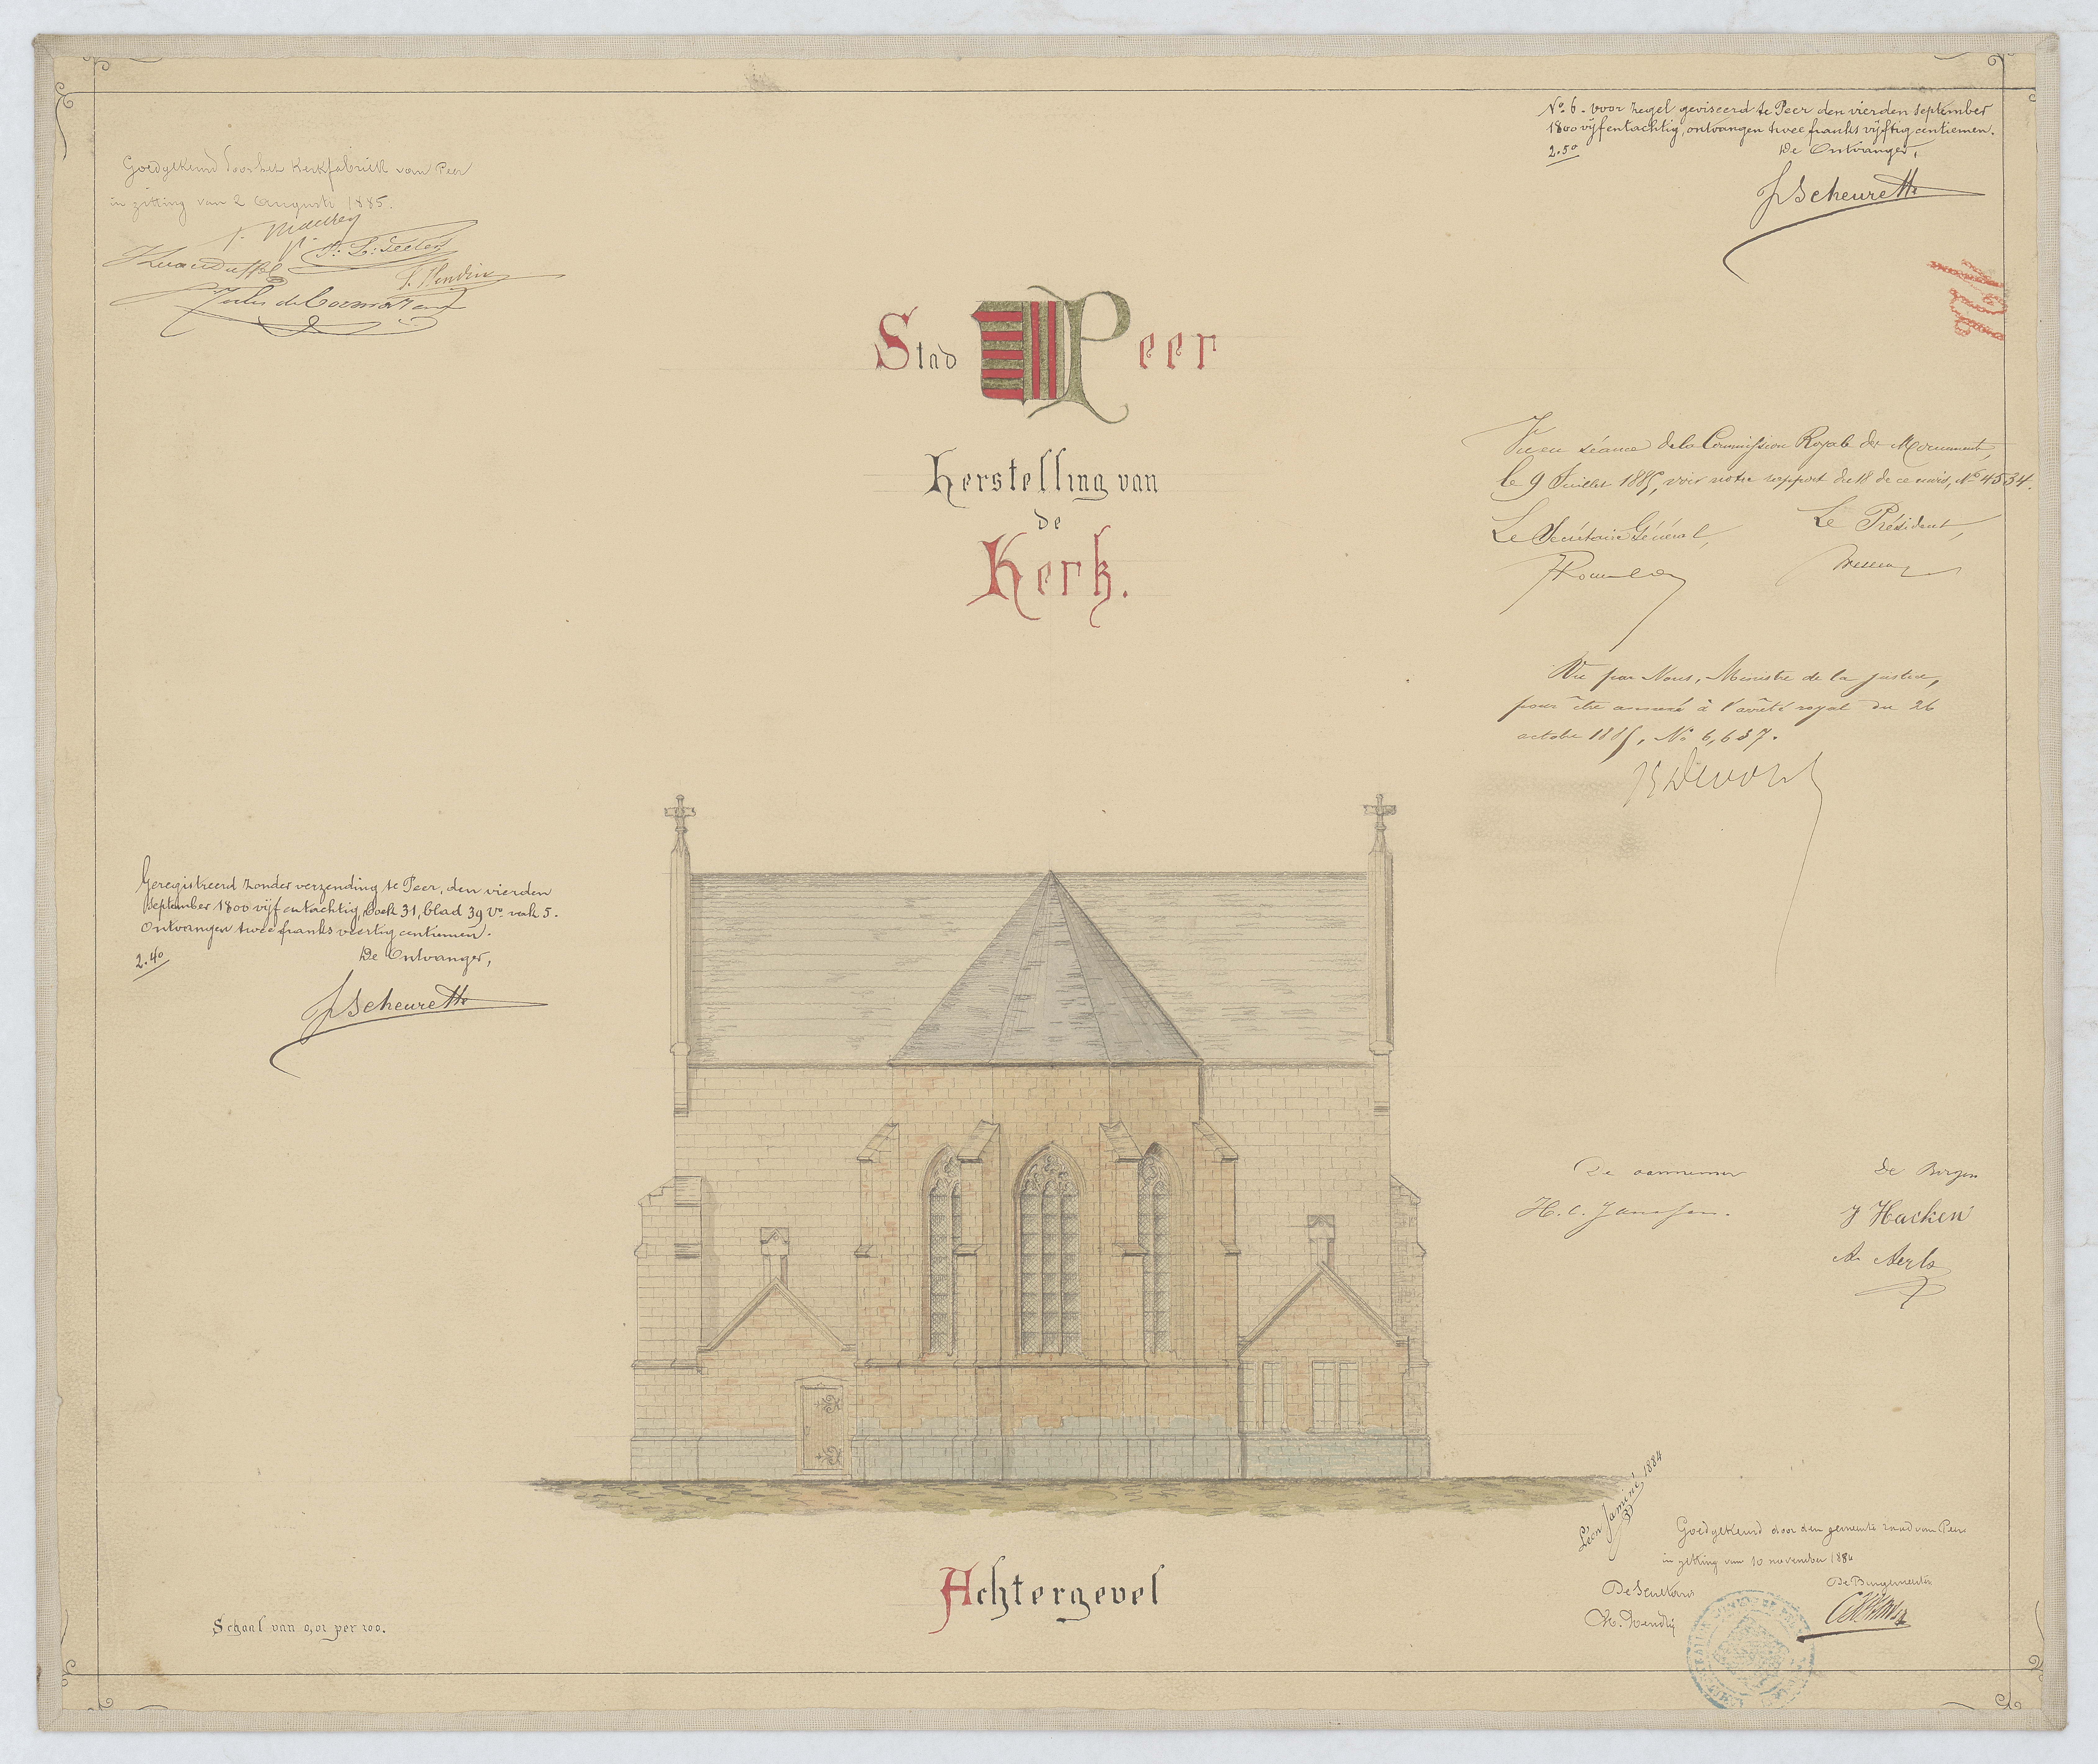 Goedgekeurd door het Kerkfabriek van Peer
in zitting van 2 Augusti 1885.
N° 6. voor zegel geviseerd te Peer den vierden September
1800 vijfentachtig, ontvangen twee franks vijftig centiemen.
2.50
De Ontvanger,
JScheurette
Stad Peer
Herstelling van
de
Kerk.
Vu en séance de la Commission Royale des Monuments,
le 9 Juillet 1885, voir notre rapport du 18 de ce mois, N° 4534.
Le Secrétaire Général,
Le Président,
Vu par Nous, Ministre de la Justice,
pour être annexé à l'arrêté royal du 26
octobre 1885, N° 6,637.
J Devolder
Geregistreerd zonder verzending te Peer, den vierden
September 1800 vijf en tachtig, boek 31, blad 39 V° vak 5.
Ontvangen twee franks veertig centiemen.
2.40
De Ontvanger,
JScheurette
De aannemer
H. C. Janssen.
De Borgen
J Hacken
A. Aerts
Léon Jaminé 1884
Goedgekeurd door den gemeente raad van Peer
in zitting van 10 november 1884
De Secretaris
De Burgemeester
Achtergevel
Schaal van 0,01 per 100.